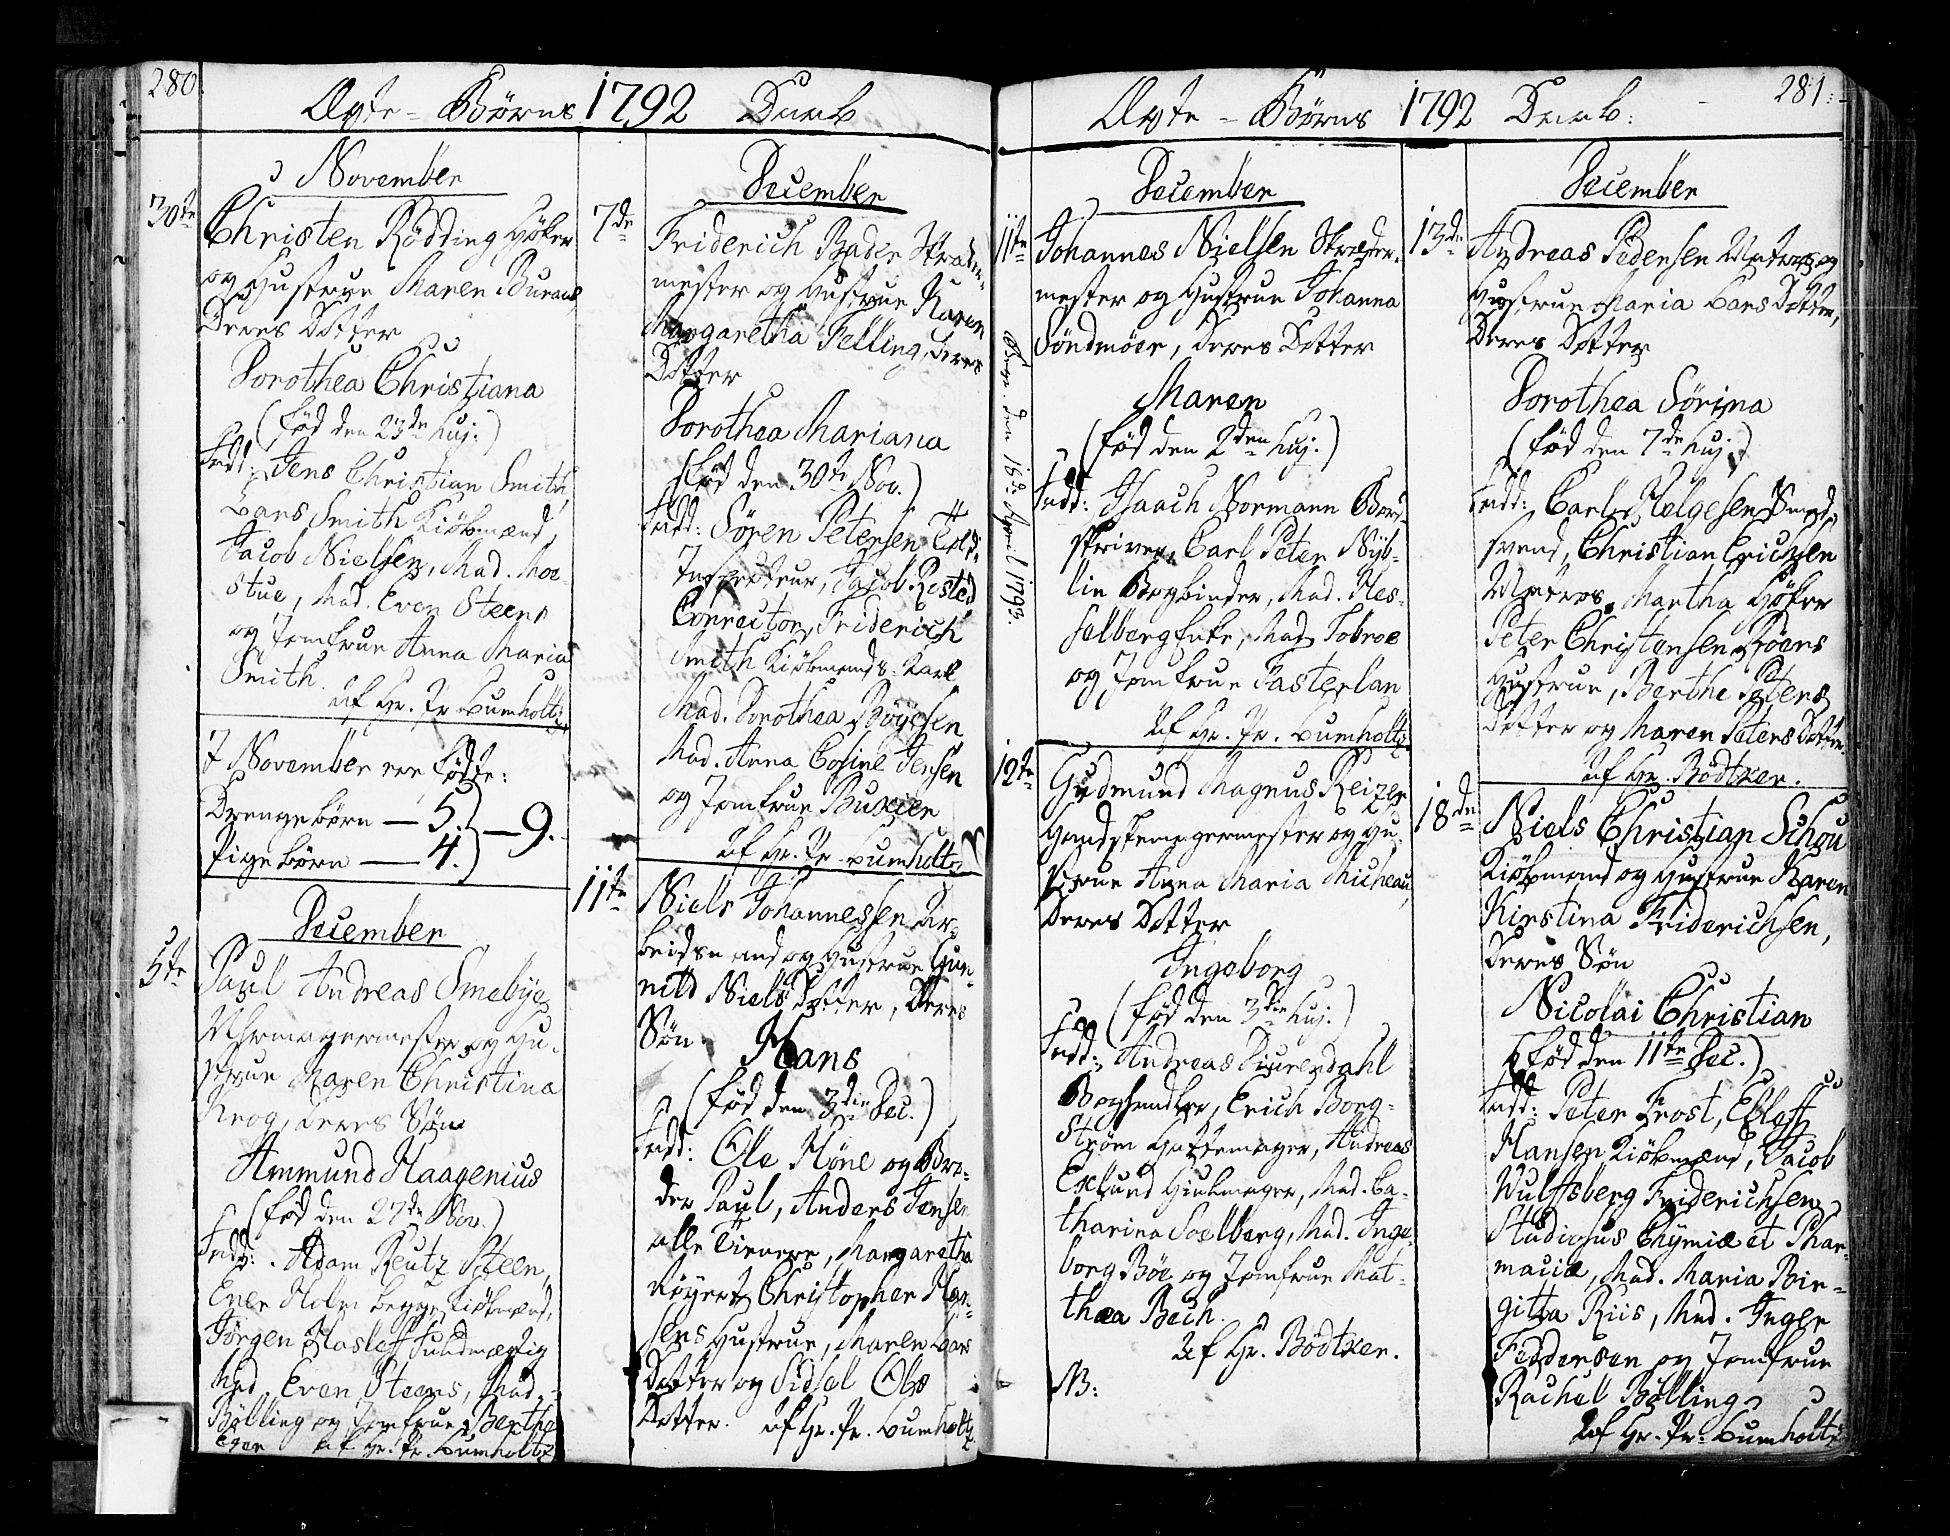 280.
Ægte-Børns 1792 Daab
November
30te
Christen Rödding Höker
og Hustrue Maren Buraas,
Deres Dotter
Dorothea Christiana
(född den 23de huj:)
Fadd: Jens Christian Smith,
Lars Smith Kiöbmænd,
Jacob Nielsen, Mad. Moe-
stue, Mad. Even Steens
og Jomfrue Anna Maria
Smith.
Af Hr. Pr. Lumholtz.
I November ere fødte:
Drengebörn — 5.
Pigebörn — 4. — 9.
December
5te
Paul Andreas Smebye
Uhrmagermester og Hu-
strue Maren Christina
Krog, deres Søn
Ammund Haagenius
(fød den 27de Nov.)
Fadd: Adam Reutz Steen,
Even Holm begge Kiöbmænd,
Jörgen Hasleff Fuldmægtig
Mad. Even Steens, Mad.
Bölling og Jomfrue Berthe
Eger af Hr. Pr. Lumholtz
7de
December
Friderich Bader Skræder-
mester og Hustrue Karen
Margaretha Felling, deres
Dotter
Dorothea Mariana
(fød den 30te Nov.)
Fadd: Sören Petersen Told-
Inspecteur, Jacob Rosted
Conrector, Friderich
Smith Kiöbmands-Karl
Mad. Dorothea Böyesen
Mad. Anna Cosine Jensen
og Jomfrue Buxier
Af Hr. Pr. Lumholtz
11te
Niels Johannessen Ar-
beidsmand og Hustrue Gun-
nild Niels Dotter, Deres
Søn
Hans
(fød den 3die Dec.)
Fadd: Ole Höne og Bro-
der Paul, Anders Jensen
alle Tienere, Margaretha
Röyert Christopher Han-
sens Hustrue, Maren Lars
Dotter og Sidsel Ols
Dotter. Af Hr. Pr. Lumholtz
281.
Ægte-Børns 1792 Daab:
December
11te
Johannes Nielsen Skræder-
mester og Hustrue Johanna
Söndmöer, deres Dotter
Maren
(fød den 2den huj.)
Fadd: Isaach Normann Bord-
skriver, Carl Peter Nÿb-
lin Bogbinder, Mad. Hes-
selberg Enke, Mad. Tobroe
og Jomfrue Pasterlan
Af Hr. Pr. Lumholtz
den 18de April 1793.
12te
Gudmund Magnus Reizer
Handskemagermester og Hu-
strue Anna Maria Micheau,
Deres Dotter
Ingeborg
(fød den 3die huj.)
Fadd: Andreas Diurendahl
Boghandler, Erich Borg-
Ström Hattemager, Andreas
Exlund Hiulmager, Mad. Ca-
tharina Soelberg, Mad. Inge-
borg Böe og Jomfrue Mat-
thea Bech.
Af Hr. Bödtker.
NB:
13de
December
Andreas Pedersen Matros og
Hustrue Maria Lars Dotter,
Deres Dotter
Dorothea Sörina
(fød den 7de huj.)
Fadd: Carl Helgesen Smed-
svend, Christian Erichsen
Matros, Martha Höker
Peter Christensen Röers
Hustrue, Berthe Peters
Dotter og Maren Peters Dotter.
Af Hr. Bödtker.
18de
Niels Christian Schou
Kiöbmand og Hustrue Karen
Kirstina Friderichsen,
Deres Søn
Nicolai Christian
(fød den 11te Dec.)
Fadd: Peter Frost, Ebleff
Hansen Kiöbmænd, Jacob
Wulffsberg Friderichsen
Studiosus Chymiæ et Phar-
maciæ, Mad. Maria Bir-
gitta Riis, Mad. Inger
Feddersen og Jomfrue
Rachel Bölling
Af Hr. Pr. Lumholtz